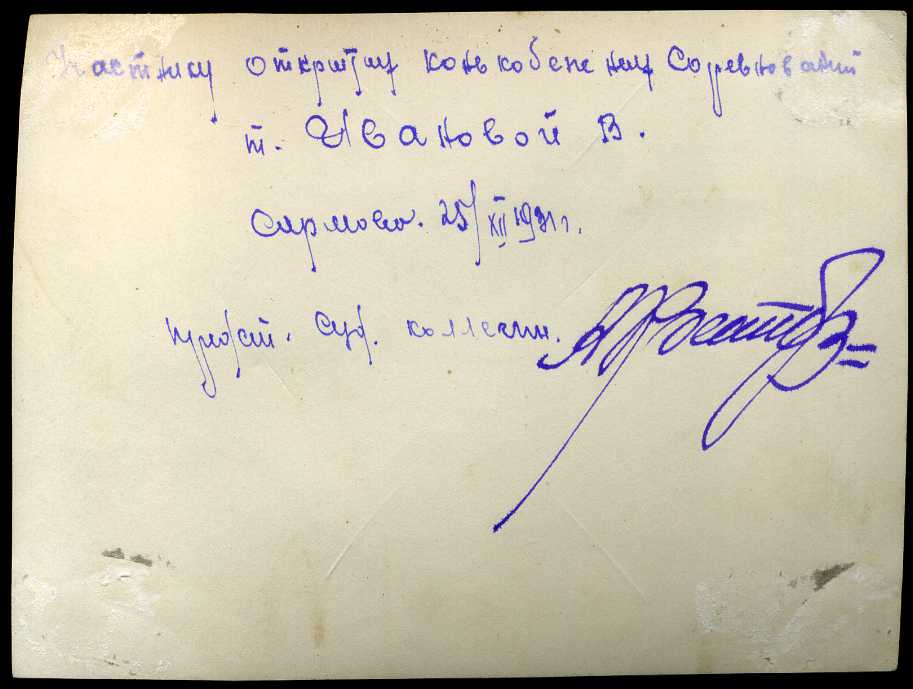 Участнику открытых конькобежных соревнований
т. Ивановой В.
Сормово. 25/XII 1931 г.
Предст. Суд. коллегии.